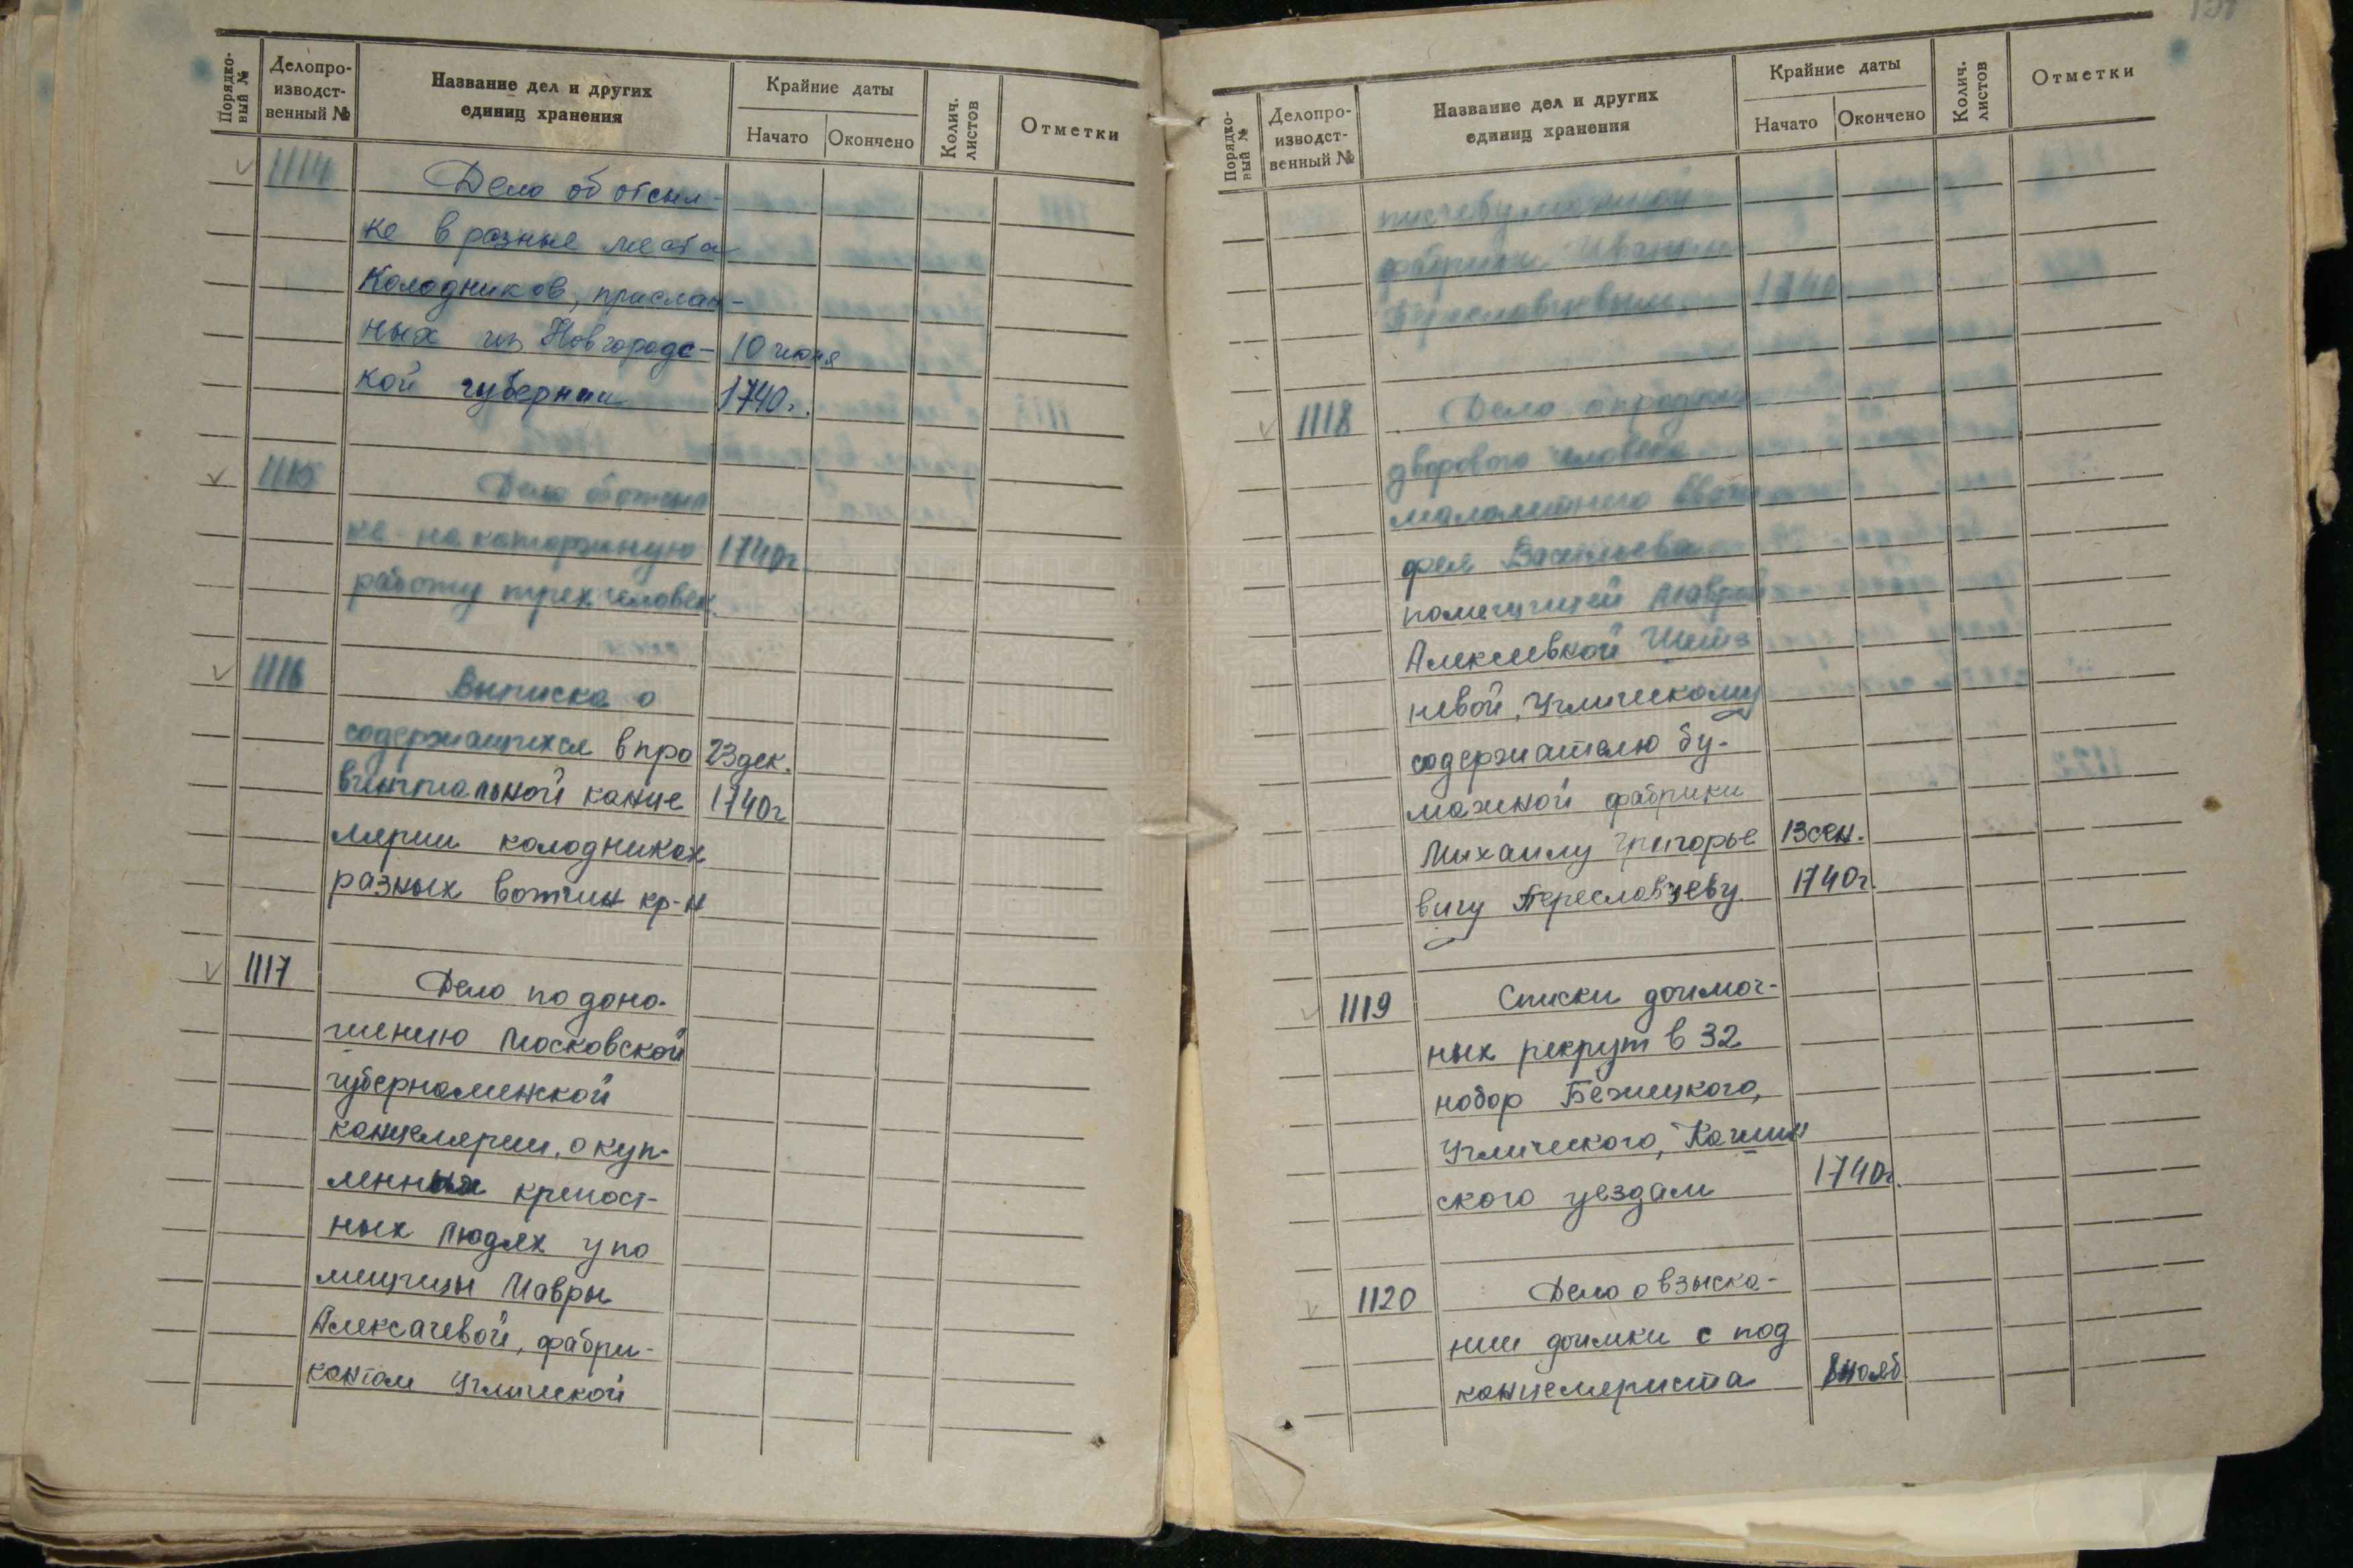 Порядко-
вый №
Делопро-
изводст-
венный №
Название дел и других
единиц хранения
Крайние даты
Начато
Окончено
Колич.
листов
Отметки
1114 Дело об отсыл-
ке в разные места
Колодников, прислан-
ных из Новгородс- 10 июня
кой губернии 1740г.
1115 Дело об отсыл
ке на каторжную 1740г.
работу трех человек.
1116 Выписка о
содержащихся в про 23 дек.
винциальной канце 1740г
лярии колодниках
разных вотчин кр-н
1117 Дело по доно-
шению Московской
губернаменской
канцелярии, о куп-
ленных крепост-
ных людях у по
мещицы Мавры
Алексачевой, фабри-
кантом Углической
Порядко-
вый №
Делопро-
изводст-
венный №
Название дел и других
единиц хранения
Крайние даты
Начато
Окончено
Колич.
листов
Отметки
писчебумажной
фабрики Иваном
Переславцевым. 1740
1118 Дело о продаже
дворового человека
малолетнего
фея Васильева
помещицей Маврой
Алексеевной
невой, Углическому
содержателю бу-
мажной фабрики
Михаилу Григорье 13 сен.
вичу Переславцеву 1740г.
1119 Списки доимоч-
ных рекрут в 32
набор Бежецкого,
Углического, Кашин
ского уездам 1740г.
1120 Дело о взыска-
нии доимки с под
канцеляриста 8 нояб